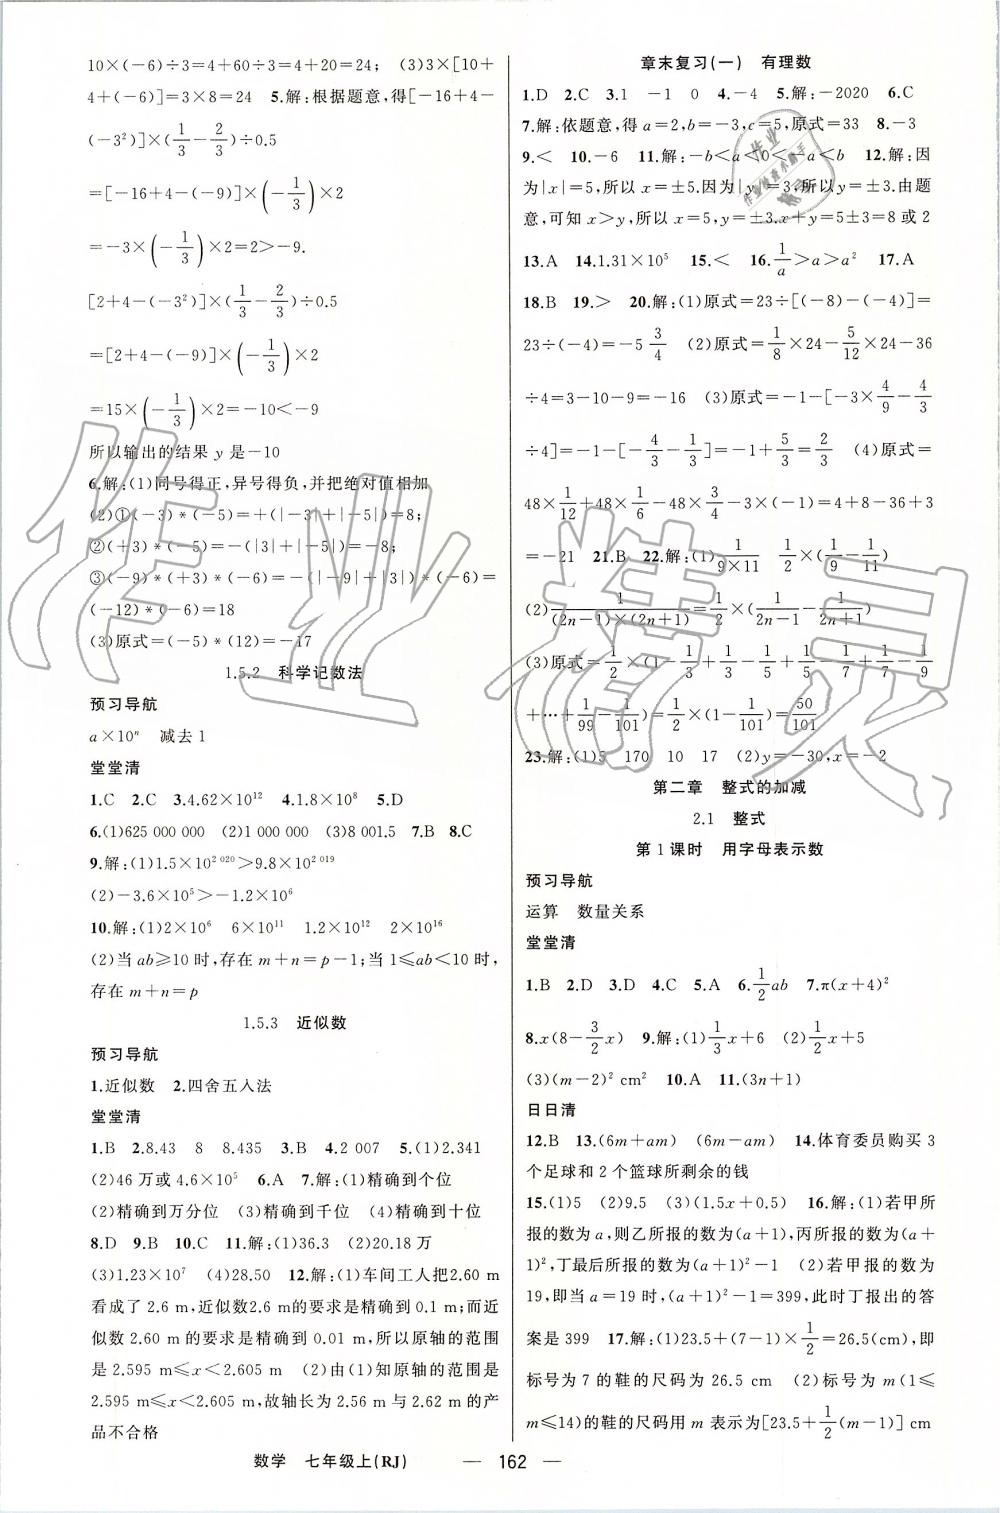 10×(-6)÷3=4+60÷3=4+20=24; (3)3×[10+
4+(-6)]=3×8=24 5.解:根据题意,得[-16+4-
(-3²)]×(1/3-2/3)÷0.5
=[-16+4-(-9)]×(-1/3)×2
=-3×(-1/3)×2=2>-9.
[2+4-(-3²)]×(1/3-2/3)÷0.5
=[2+4-(-9)]×(-1/3)×2
=15×(-1/3)×2=-10<-9
所以输出的结果 y 是-10
6.解:(1)同号得正,异号得负,并把绝对值相加
(2)①(-3)*(-5)=+(|-3|+|-5|)=8;
②(+3)*(-5)=-(|3|+|-5|)=-8;
③(-9)*(+3)*(-6)=-(|-9|+|3|)*(-6)=
(-12)*(-6)=18
(3)原式=(-5)*(12)=-17
1.5.2 科学记数法
预习导航
a×10ⁿ 减去 1
堂堂清
1.C 2.C 3.4.62×10¹² 4.1.8×10⁸ 5.D
6.(1)625 000 000 (2)1 000 000 (3)8 001.5 7.B 8.C
9.解:(1)1.5×10²⁰²⁰>9.8×10²⁰¹⁹
(2)-3.6×10⁵>-1.2×10⁶
10.解:(1)2×10⁶ 6×10¹¹ 1.2×10¹² 2×10¹⁶
(2)当 ab≥10 时,存在 m+n=p-1;当 1≤ab<10 时,
存在 m+n=p
1.5.3 近似数
预习导航
1.近似数 2.四舍五入法
堂堂清
1.B 2.8.43 8 8.435 3.B 4.2 007 5.(1)2.341
(2)46 万或 4.6×10⁵ 6.A 7.解:(1)精确到个位
(2)精确到万分位 (3)精确到千位 (4)精确到十位
8.D 9.B 10.C 11.解:(1)36.3 (2)20.18 万
(3)1.23×10⁷ (4)28.50 12.解:(1)车间工人把2.60 m
看成了 2.6 m,近似数2.6 m的要求是精确到 0.1 m;而近
似数 2.60 m 的要求是精确到 0.01 m,所以原轴的范围
是 2.595 m≤x<2.605 m (2)由(1)知原轴的范围是
2.595 m≤x<2.605 m,故轴长为 2.56 m 与 2.62 m 的产
品不合格
章末复习(一) 有理数
1.D 2.C 3.1 -1 0 4.-4 5.解:-2020 6.C
7.解:依题意,得 a=2,b=-3,c=5,原式=33 8.-3
9.< 10.-6 11.解:-b<a<0<-a<b 12.解:因
为|x|=5,所以 x=±5.因为|y|=3,所以 y=±3.由题
意,可知 x>y,所以 x=5,y=±3.x+y=5±3=8 或 2
13.A 14.1.31×10⁵ 15.< 16.1/a>a>a² 17.A
18.B 19.> 20.解:(1)原式=23÷[(-8)-(-4)]=
23÷(-4)=-5 3/4 (2)原式=1/8×24-5/12×24-36
÷4=3-10-9=-16 (3)原式=-1-[-3×4/9-4/3
÷4]=-1-[-4/3-1/3]=-1+5/3=2/3 (4)原式=
48×1/12+48×1/6-48×3/4-3×(-1)=4+8-36+3
=-21 21.B 22.解:(1)1/(9×11) 1/2×(1/9-1/11)
(2)1/((2n-1)×(2n+1))=1/2×(1/(2n-1)-1/(2n+1))
(3)原式=1/2×(1-1/3+1/3-1/5+1/5-1/7+1/7-1/9
+…+1/99-1/101)=1/2×(1-1/101)=50/101
23.解:(1)5 170 10 17 (2)y=-30,x=-2
第二章 整式的加减
2.1 整式
第 1 课时 用字母表示数
预习导航
运算 数量关系
堂堂清
1.B 2.D 3.D 4.C 5.A 6.1/2ab 7.π(x+4)²
8.x(8-3/2x) 9.解:(1)1/3x+6 (2)1/2x+5
(3)(m-2)² cm² 10.A 11.(3n+1)
日日清
12.B 13.(6m+am) (6m-am) 14.体育委员购买 3
个足球和 2 个篮球所剩余的钱
15.(1)5 (2)9.5 (3)(1.5x+0.5) 16.解:(1)若甲所
报的数为 a,则乙所报的数为(a+1),丙所报的数为(a+
1)²,丁最后所报的数为(a+1)²-1 (2)若甲报的数为
19,即当 a=19 时,(a+1)²-1=399,此时丁报出的答
案是 399 17.解:(1)23.5+(7-1)×1/2=26.5(cm),即
标号为 7 的鞋的尺码为 26.5 cm (2)标号为 m(1≤
m≤14)的鞋的尺码用 m 表示为[23.5+1/2(m-1)] cm
数学 七年级上(RJ) — 162 —
作业精灵